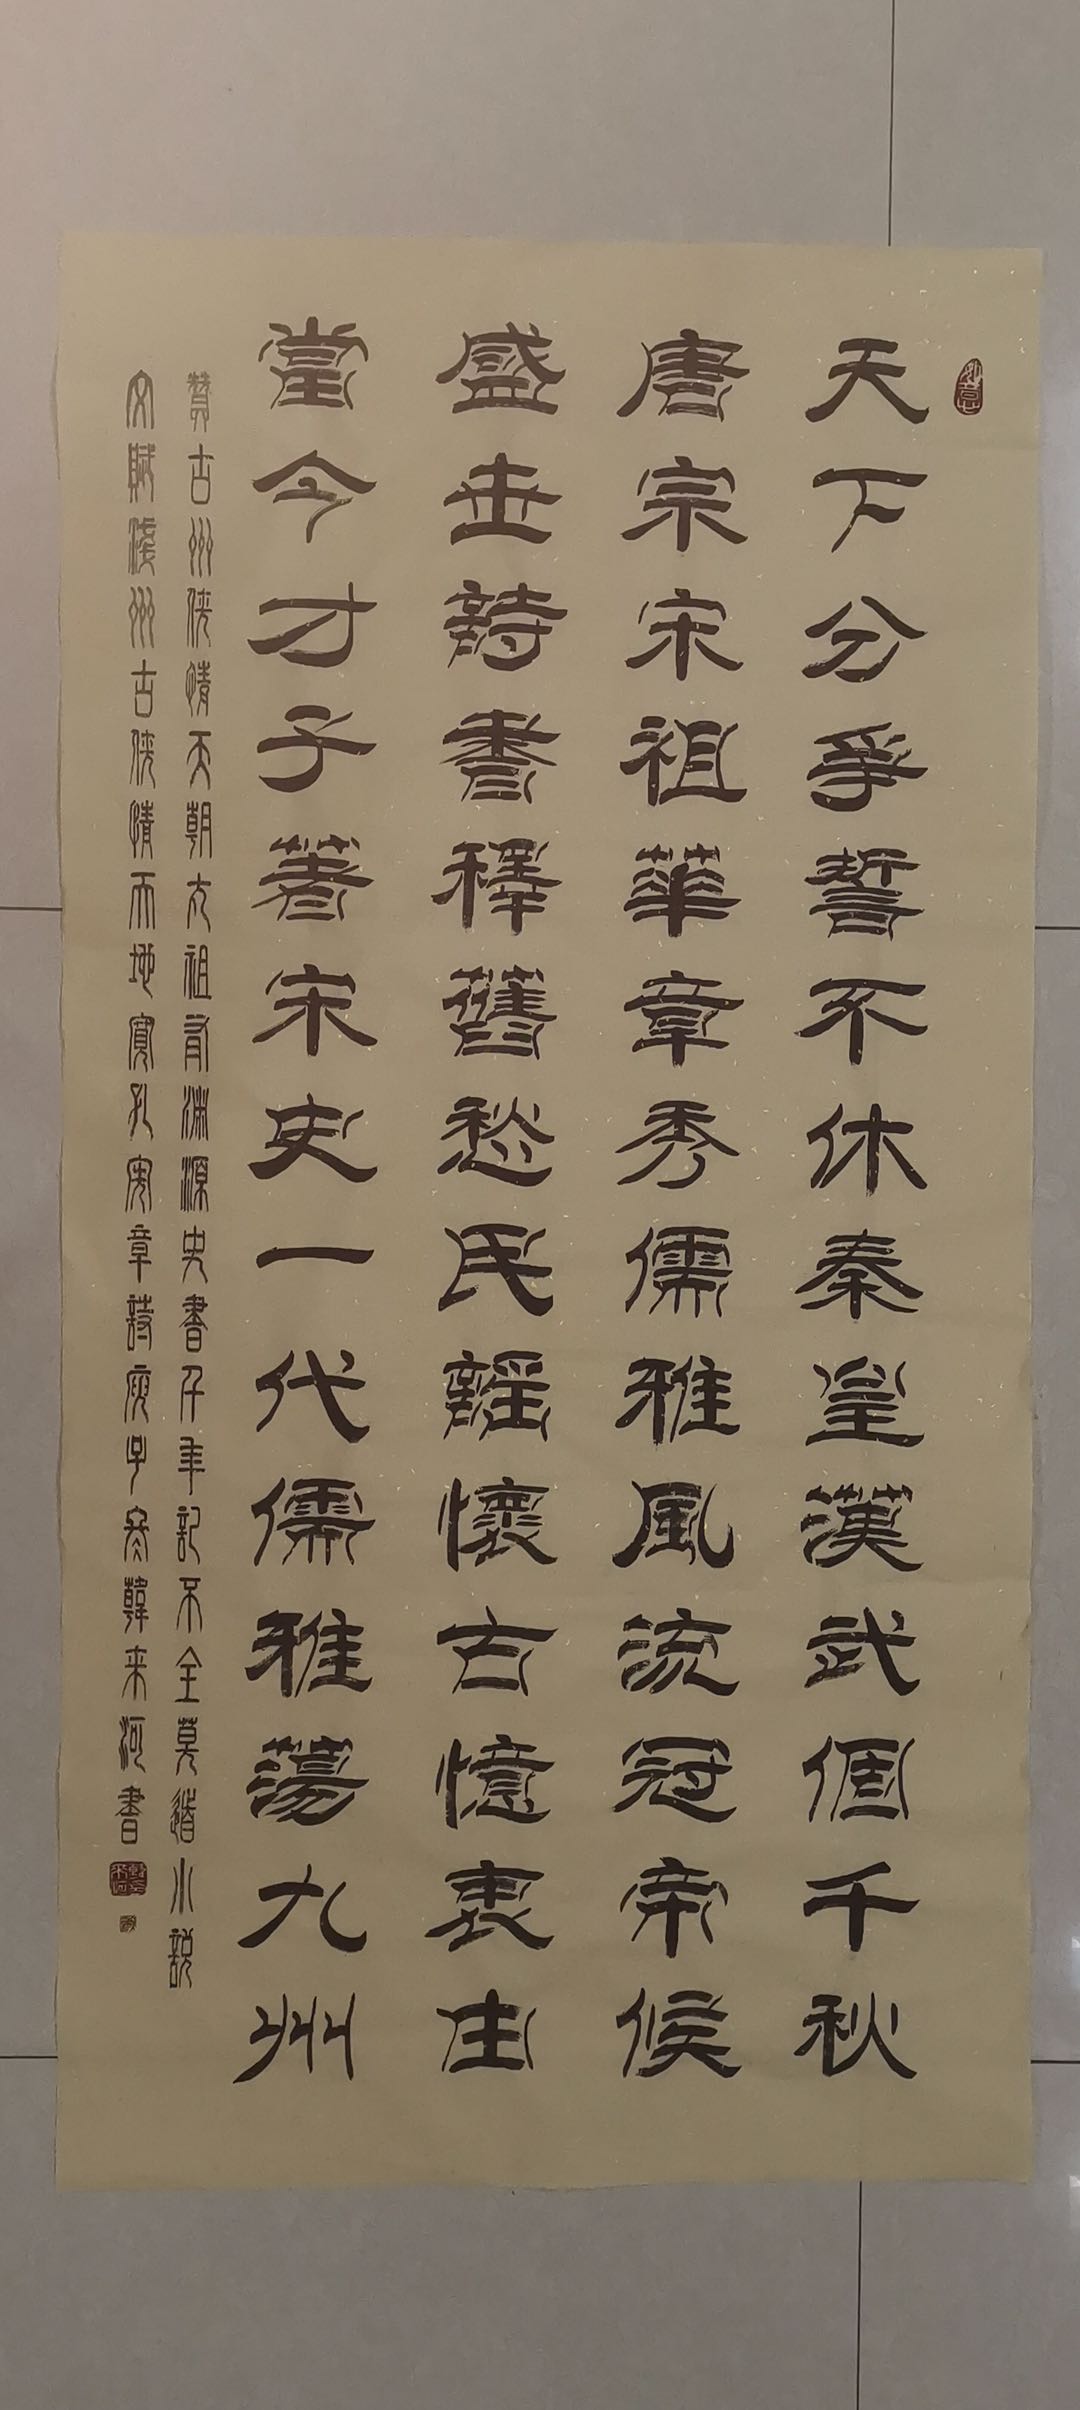 天下分爭誓不休秦皇漢武個千秋
唐宗宋祖華章秀儒雅風流冠帝侯
盛世詩書釋舊愁民謠懷古憶衷由
當今才子著宋史一代儒雅蕩九州
贊古州俠情天朝太祖有淵源史書千年記不全莫道小說
文賦淺州古俠情天地寬孔安章詩庚子冬韓来河書
如意